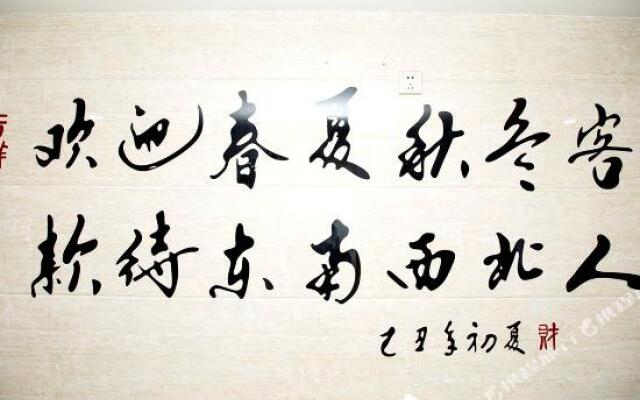 吉祥
欢迎春夏秋冬客
款待东南西北人
乙丑年初夏
财